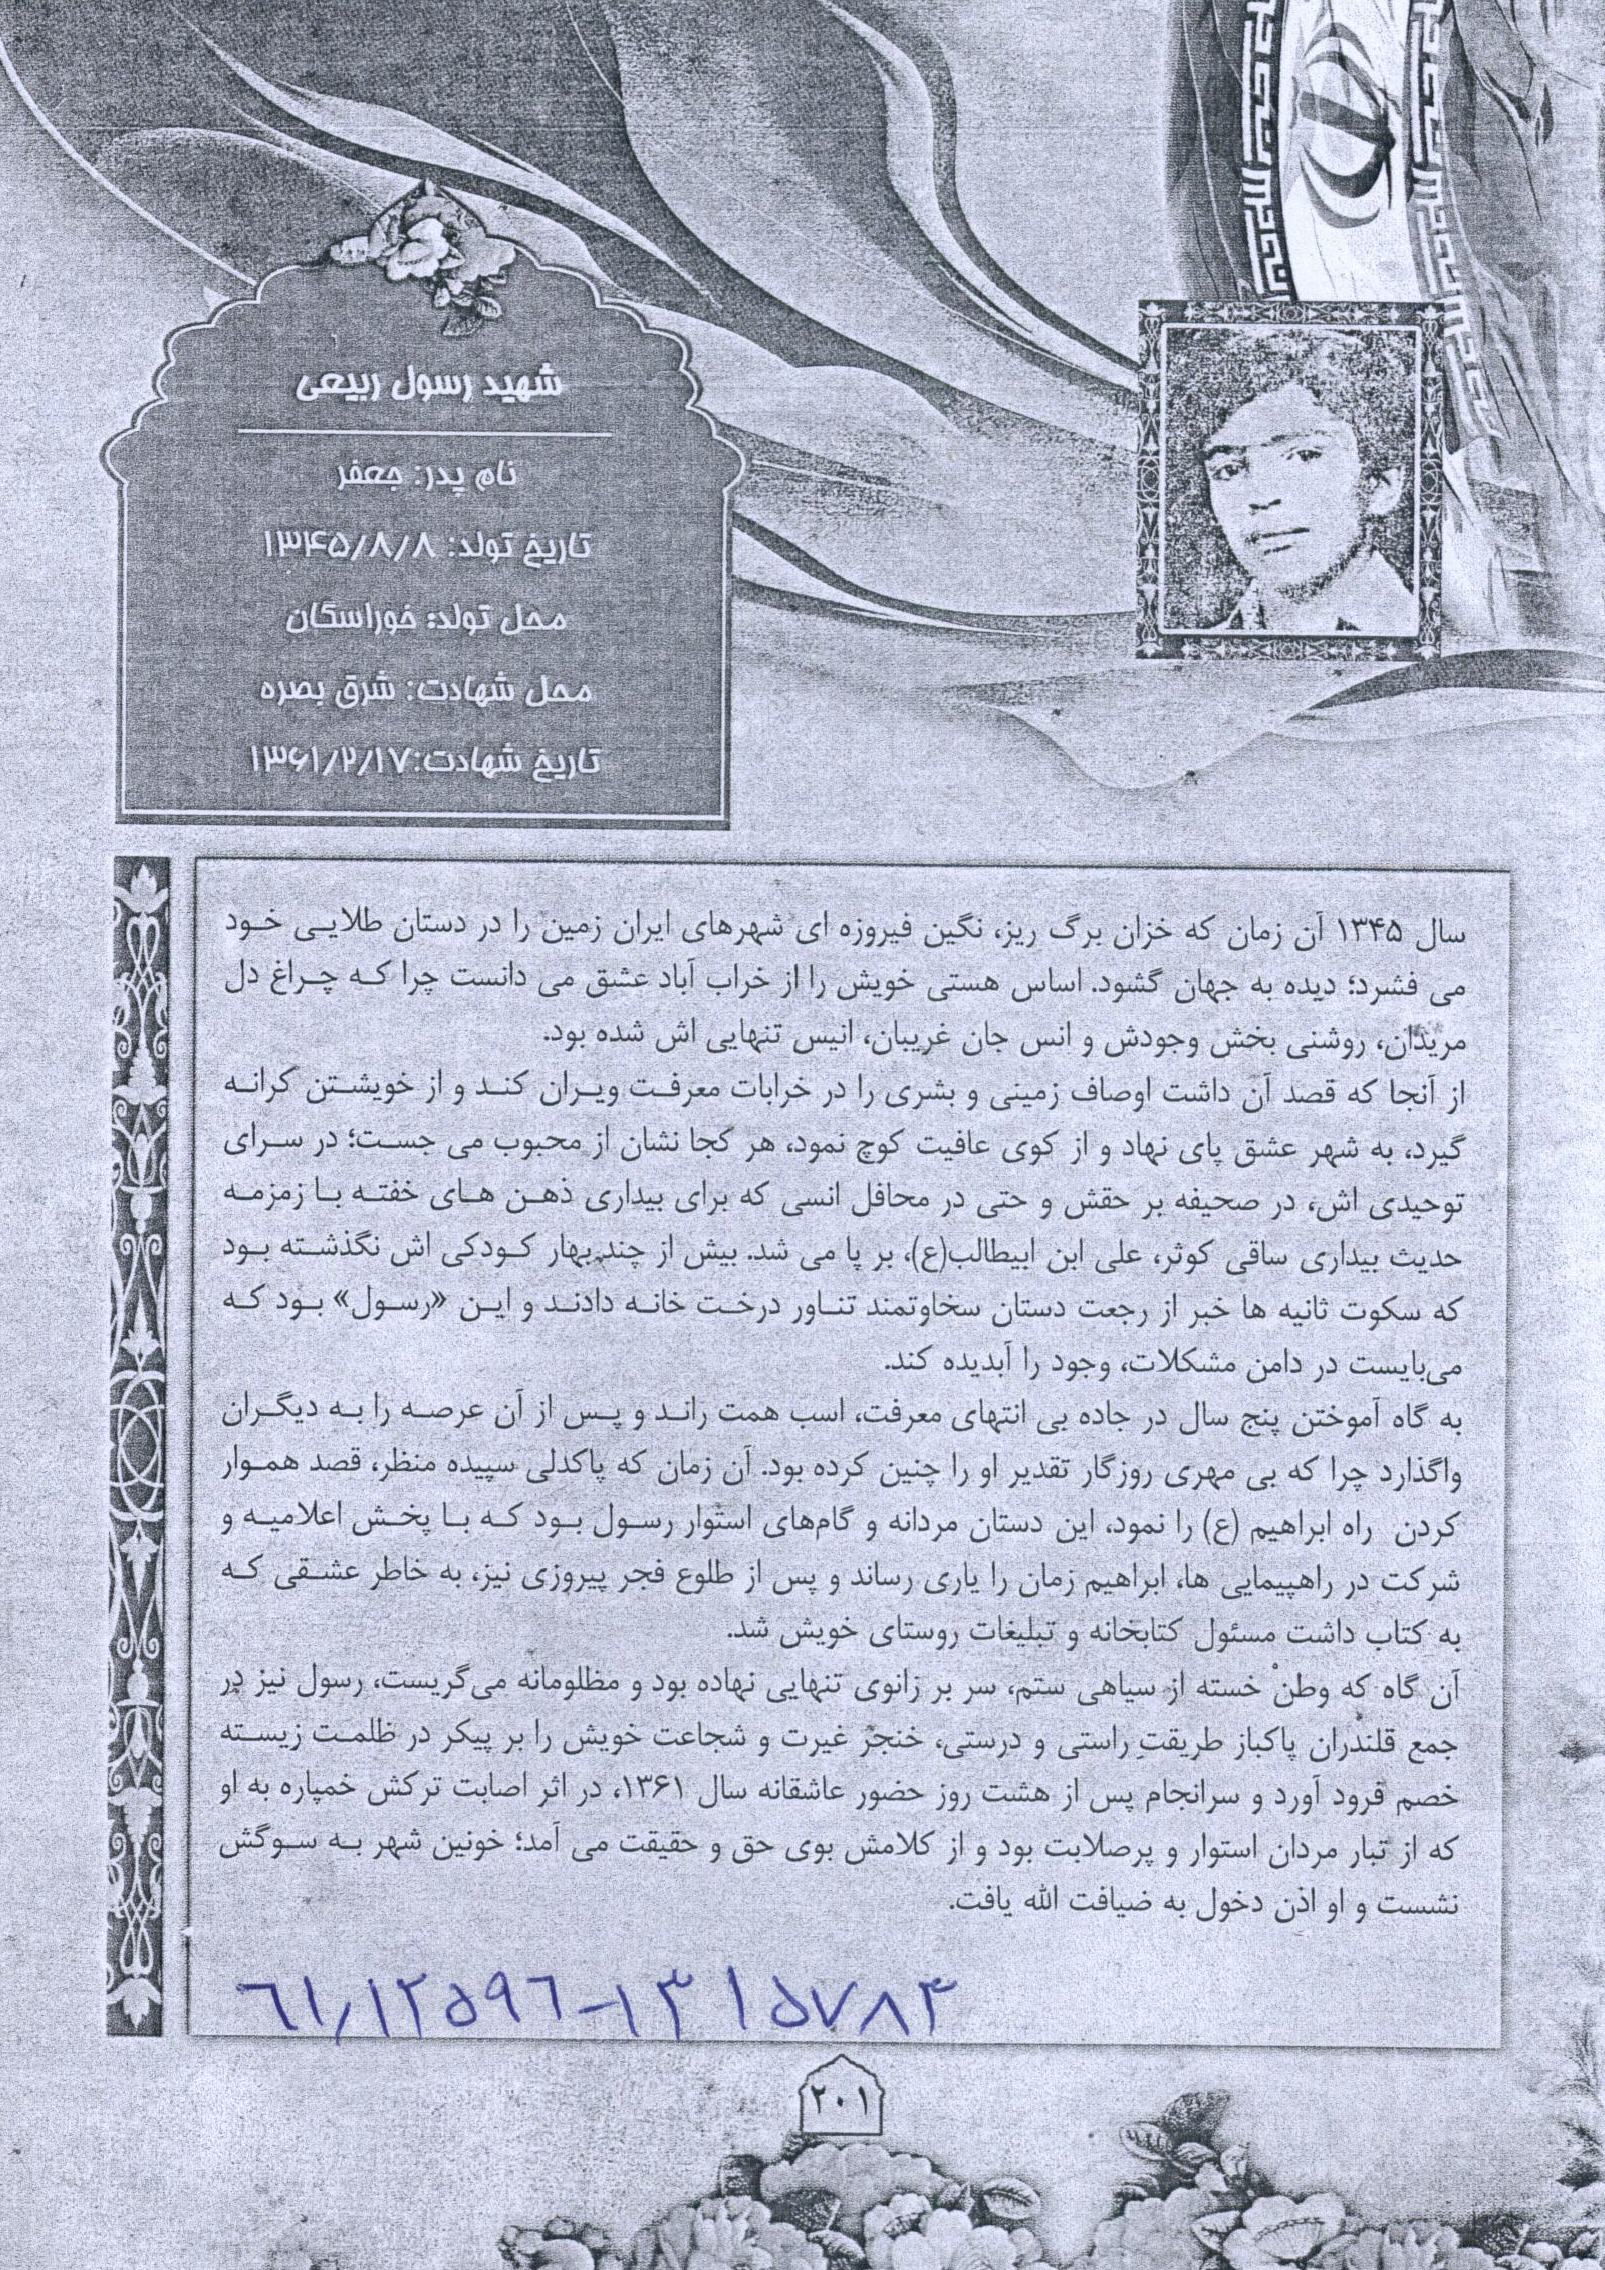 شهید رسول ربیعی
نام پدر: جعفر
تاریخ تولد: ۱۳۴۵/۸/۸
محل تولد: خوراسگان
محل شهادت: شرق بصره
تاریخ شهادت:۱۳۶۱/۲/۱۷
سال ۱۳۴۵ آن زمان که خزان برگ ریز، نگین فیروزه ای شهرهای ایران زمین را در دستان طلایی خود
می فشرد؛ دیده به جهان گشود. اساس هستی خویش را از خراب آباد عشق می دانست چرا که چراغ دل
مریدان، روشنی بخش وجودش و انس جان غریبان، انیس تنهایی اش شده بود.
از آنجا که قصد آن داشت اوصاف زمینی و بشری را در خرابات معرفت ویران کند و از خویشتن کرانه
گیرد، به شهر عشق پای نهاد و از کوی عافیت کوچ نمود، هر کجا نشان از محبوب می جست؛ در سرای
توحیدی اش، در صحیفه بر حقش و حتی در محافل انسی که برای بیداری ذهن های خفته با زمزمه
حدیث بیداری ساقی کوثر، علی ابن ابیطالب(ع)، بر پا می شد. بیش از چند بهار کودکی اش نگذشته بود
که سکوت ثانیه ها خبر از رجعت دستان سخاوتمند تناور درخت خانه دادند و این «رسول» بود که
می‌بایست در دامن مشکلات، وجود را آبدیده کند.
به گاه آموختن پنج سال در جاده بی انتهای معرفت، اسب همت راند و پس از آن عرصه را به دیگران
واگذارد چرا که بی مهری روزگار تقدیر او را چنین کرده بود. آن زمان که پاکدلی سپیده منظر، قصد هموار
کردن راه ابراهیم (ع) را نمود، این دستان مردانه و گام‌های استوار رسول بود که با پخش اعلامیه و
شرکت در راهپیمایی ها، ابراهیم زمان را یاری رساند و پس از طلوع فجر پیروزی نیز، به خاطر عشقی که
به کتاب داشت مسئول کتابخانه و تبلیغات روستای خویش شد.
آن گاه که وطنْ خسته از سیاهی ستم، سر بر زانوی تنهایی نهاده بود و مظلومانه می‌گریست، رسول نیز در
جمع قلندران پاکباز طریقتِ راستی و درستی، خنجر غیرت و شجاعت خویش را بر پیکر در ظلمت زیسته
خصم فرود آورد و سرانجام پس از هشت روز حضور عاشقانه سال ۱۳۶۱، در اثر اصابت ترکش خمپاره به او
که از تبار مردان استوار و پرصلابت بود و از کلامش بوی حق و حقیقت می آمد؛ خونین شهر به سوگش
نشست و او اذن دخول به ضیافت الله یافت.
۶۱/۱۲۵۹۶-۱۳۱۵۷۸۴
۲۰۱